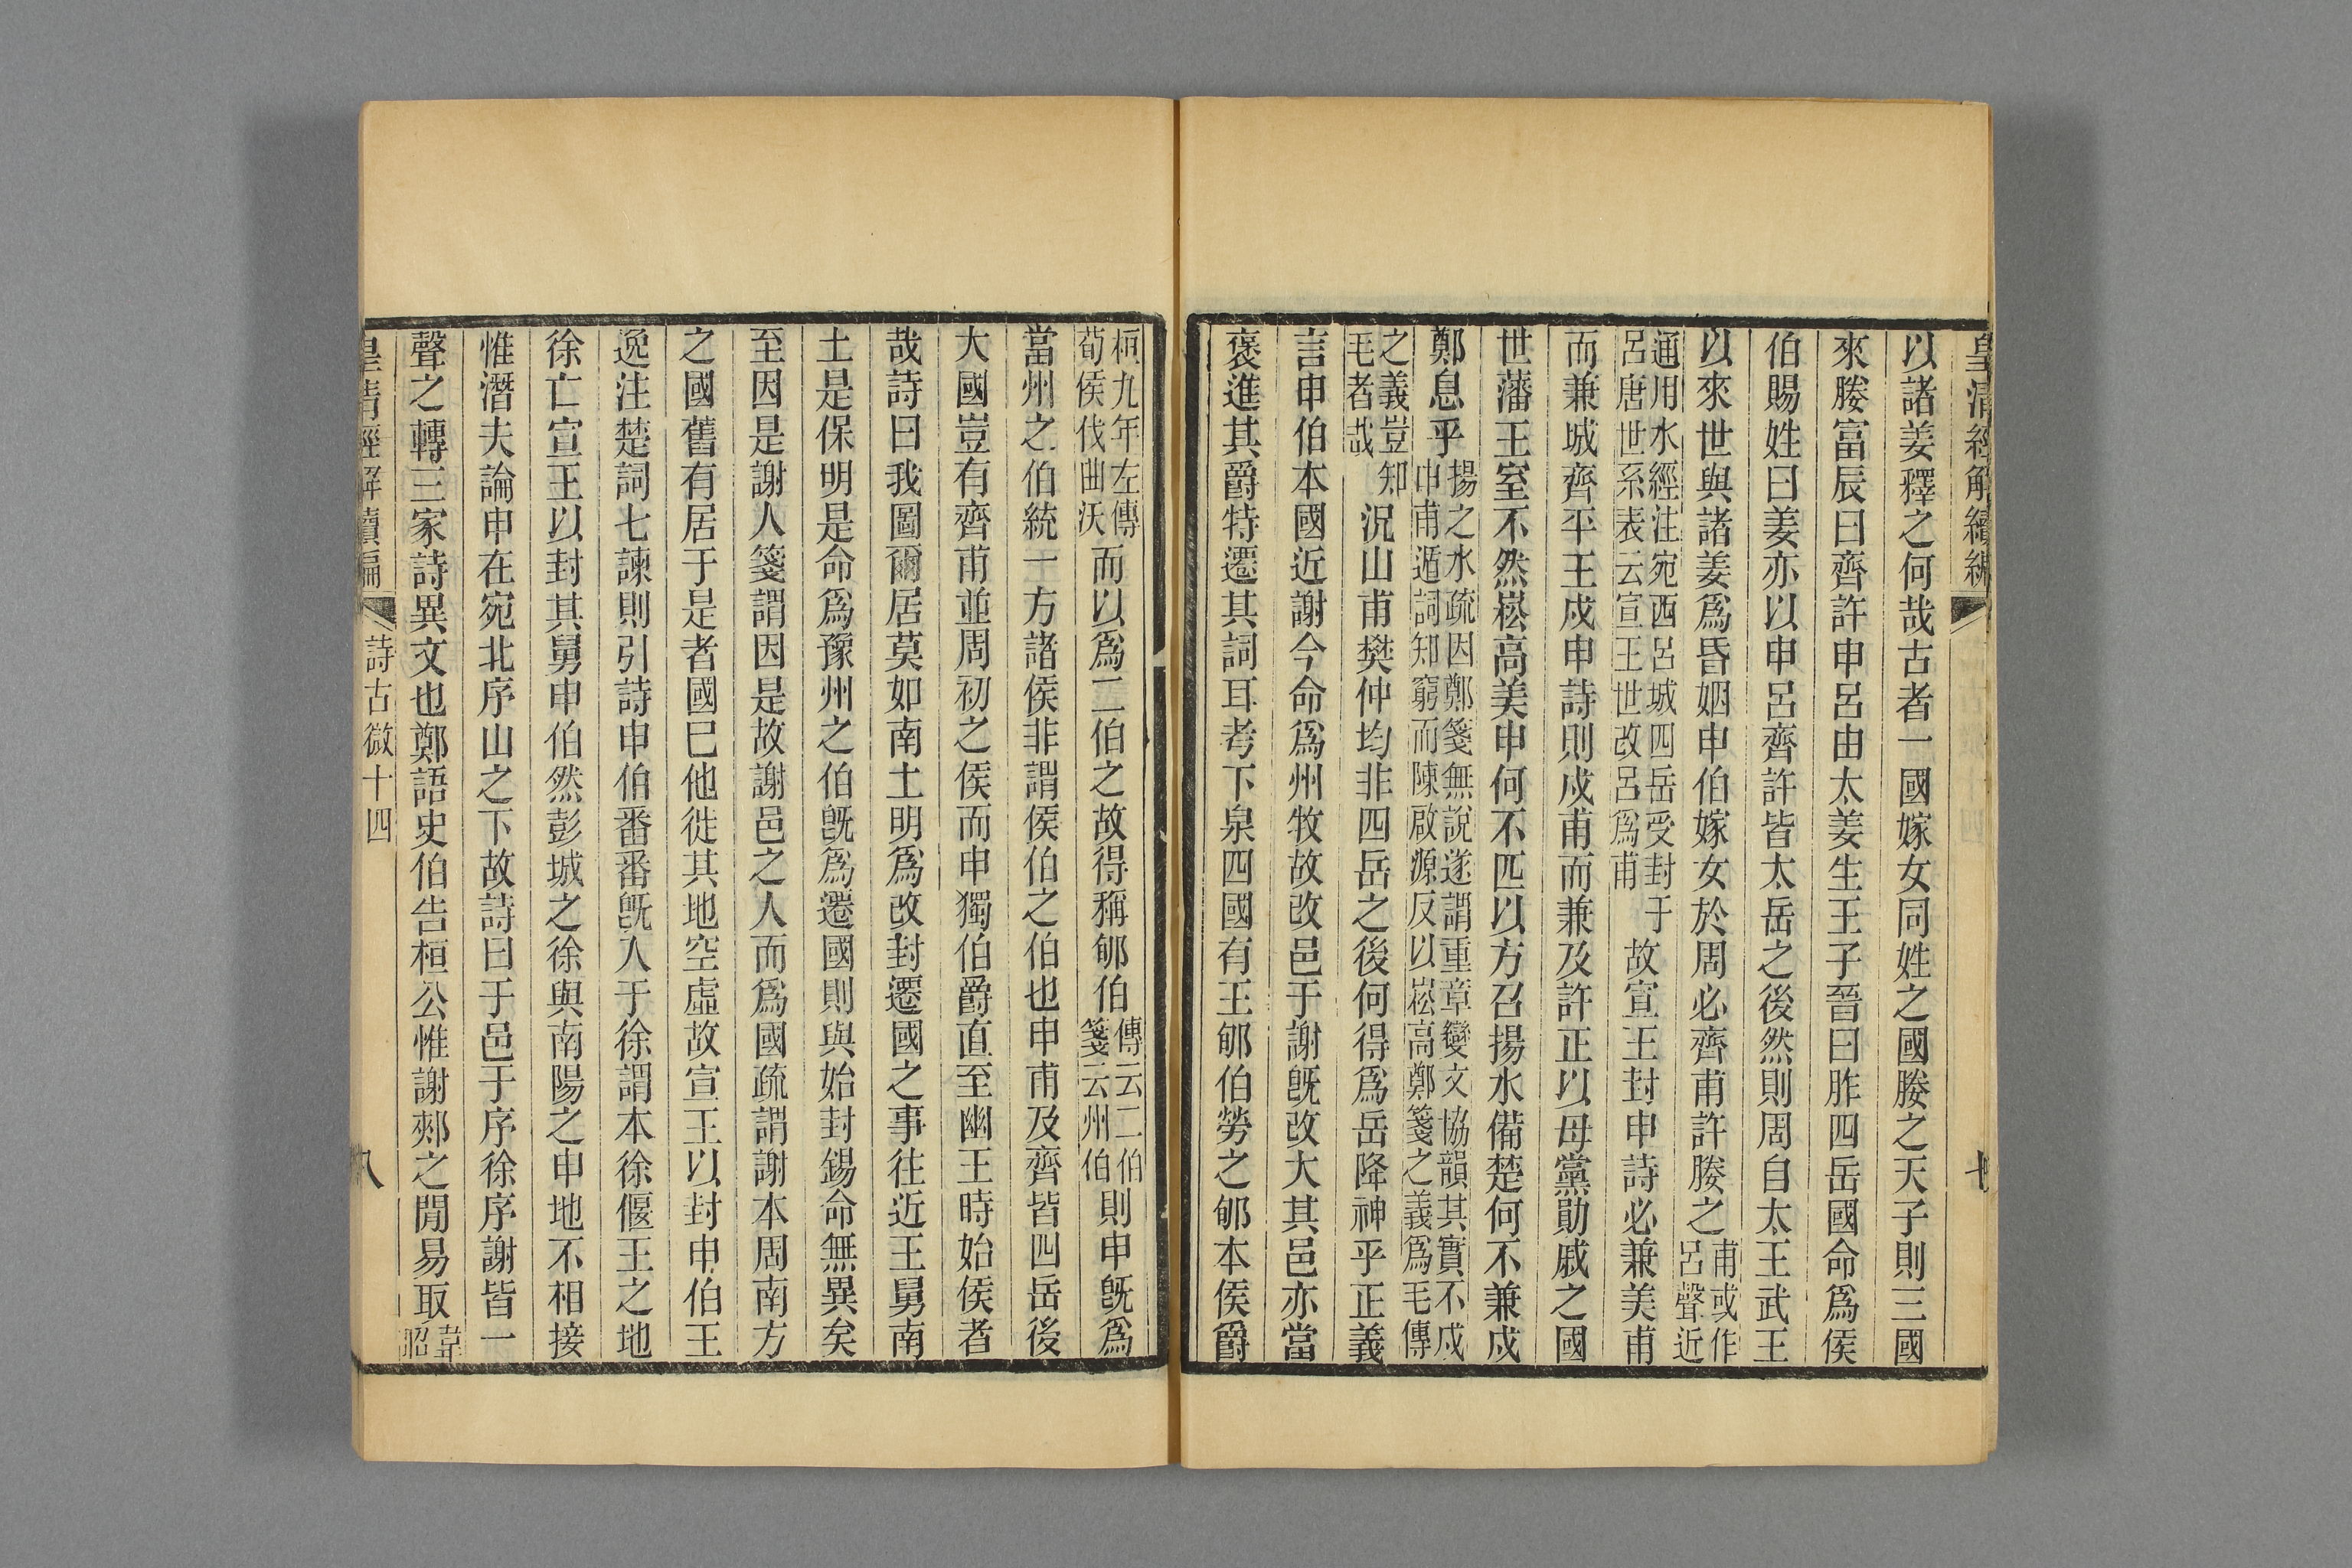 皇清經解續編 七
以諸姜釋之何哉古者一國嫁女同姓之國媵之天子則三國
來媵富辰曰齊許申呂由太姜生王子晉曰胙四岳國命爲侯
伯賜姓曰姜亦以申呂齊許皆太岳之後然則周自太王武王
以來世與諸姜爲昏姻申伯嫁女於周必齊甫許媵之甫或作呂聲近
通用水經注宛西呂城四岳受封于呂唐世系表云宣王世改呂爲甫故宣王封申詩必兼美甫
而兼城齊平王戍申詩則戍甫而兼及許正以母黨勛戚之國
世藩王室不然崧高美申何不匹以方召揚水備楚何不兼戍
鄭息乎揚之水疏因鄭箋無說遂謂重章變文協韻其實不戍申甫遁詞知窮而陳啟源反以崧高鄭箋之義爲毛傳
之義豈知毛者哉況山甫樊仲均非四岳之後何得爲岳降神乎正義
言申伯本國近謝今命爲州牧故改邑于謝旣改大其邑亦當
褒進其爵特遷其詞耳考下泉四國有王郇伯勞之郇本侯爵
桓九年左傳荀侯伐曲沃而以爲二伯之故得稱郇伯傳云二伯箋云州伯則申旣爲
當州之伯統一方諸侯非謂侯伯之伯也申甫及齊皆四岳後
大國豈有齊甫並周初之侯而申獨伯爵直至幽王時始侯者
哉詩曰我圖爾居莫如南土明爲改封遷國之事往近王舅南
土是保明是命爲豫州之伯旣爲遷國則與始封錫命無異矣
至因是謝人箋謂因是故謝邑之人而爲國疏謂謝本周南方
之國舊有居于是者國巳他徙其地空虛故宣王以封申伯王
逸注楚詞七諫則引詩申伯番番旣入于徐謂本徐偃王之地
徐亡宣王以封其舅申伯然彭城之徐與南陽之申地不相接
惟潛夫論申在宛北序山之下故詩曰于邑于序徐序謝皆一
聲之轉三家詩異文也鄭語史伯告桓公惟謝郟之閒易取韋昭
皇清經解續編 詩古微十四 八